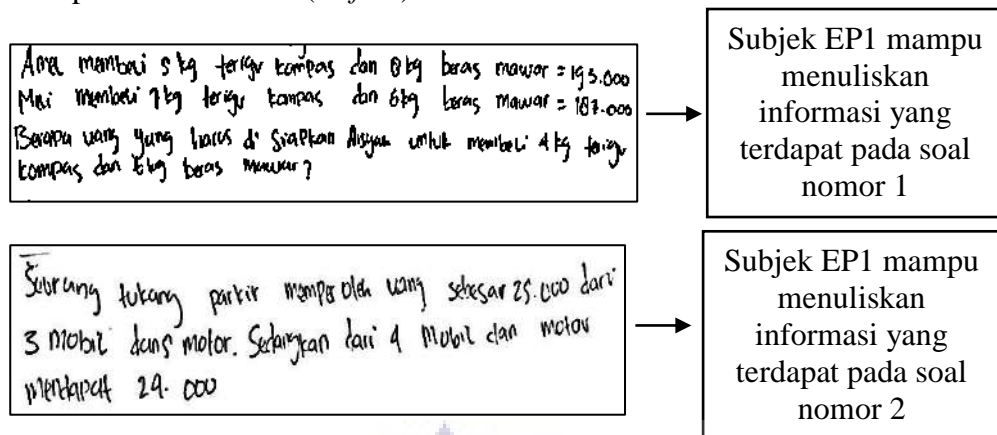 Ama membeli 5 kg terigu kompas dan 8 kg beras mawar = 193.000
Mei membeli 7 kg terigu kompas dan 6 kg beras mawar = 187.000
Berapa uang yang harus di siapkan Aisyah untuk membeli 4 kg terigu
kompas dan kg beras mawar?
Subjek EP1 mampu
menuliskan
informasi yang
terdapat pada soal
nomor 1
Seorang tukang parkir memperoleh uang sebesar 25.000 dari
3 mobil dan 5 motor. Sedangkan dari 4 Mobil dan motor
mendapat 29.000
Subjek EP1 mampu
menuliskan
informasi yang
terdapat pada soal
nomor 2